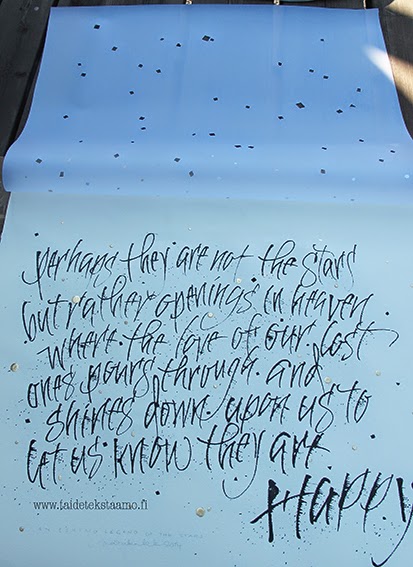 perhaps they are not the stars
but rather openings in heaven
where the love of our lost
ones pours through and
shines down upon us to
let us know they are
Happy
www.taidetekstaamo.fi